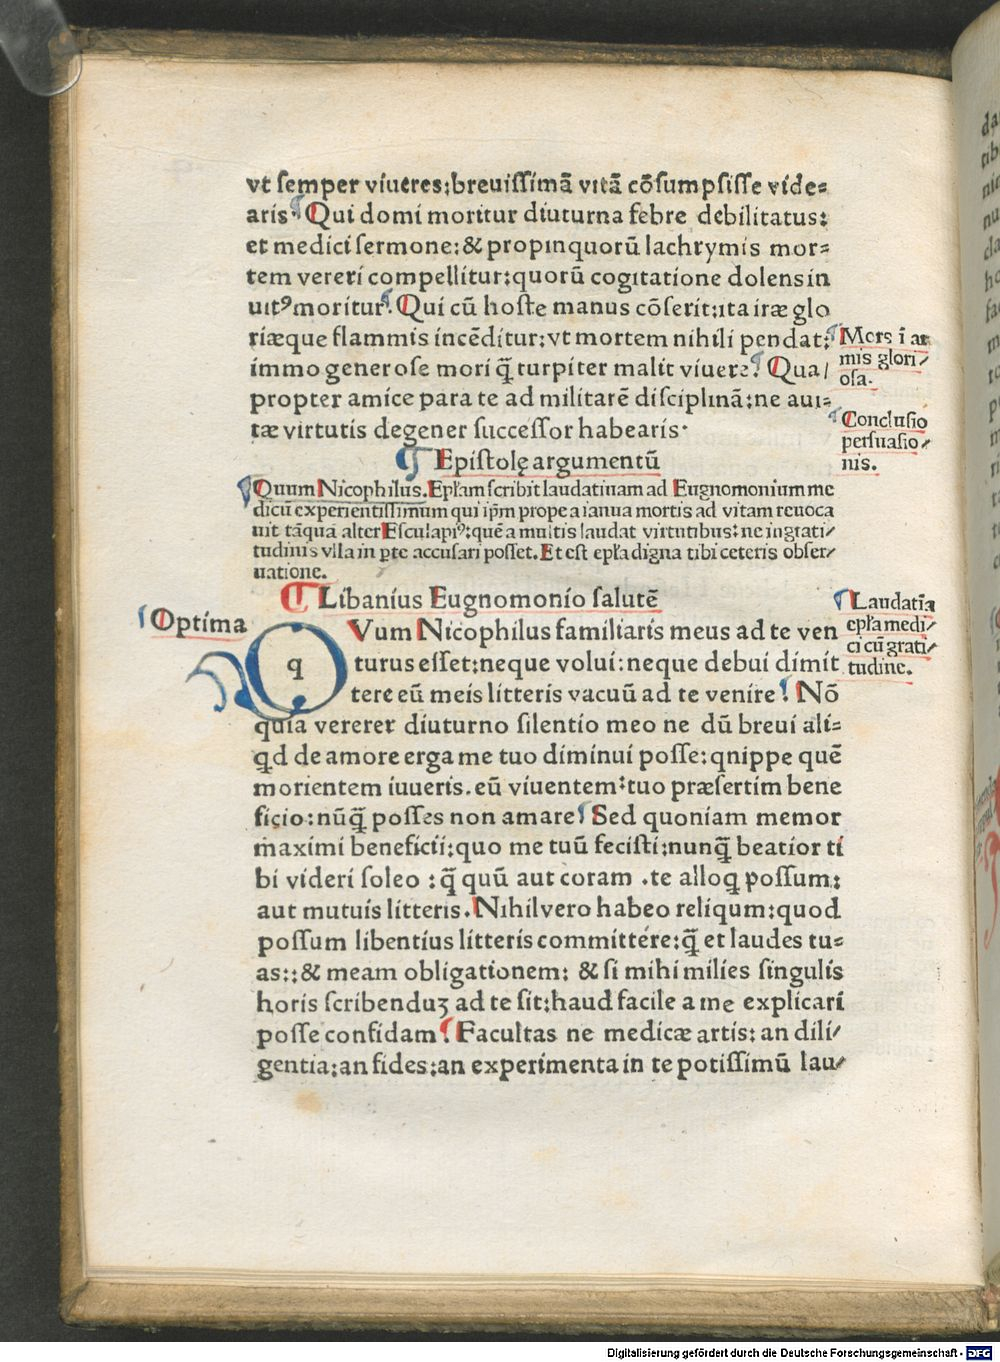 vt semper viueres:breuissimā vitā cōsumpsisse vide=
aris Qui domi moritur diuturna febre debilitatus:
et medici sermone:& propinquorū lachrymis mor=
tem vereri compellitur:quorū cogitatione dolens in
uitꝰ moritur. Qui cū hoste manus cōserit:ita iræ glo
riæque flammis incēditur:vt mortem nihili pendat:
immo generose mori q̄ turpiter malit viuere? Qua/
propter amice para te ad militarē disciplinā:ne aui=
tæ virtutis degener successor habearis·
Mors ī ar
mis glori/
osa.
Conclusio
persuasio/
nis.
¶ Epistolę argumentū
Quum Nicophilus. Epłam scribit laudatiuam ad Eugnomonium me
dicū experientissimum qui ip̄m prope a ianua mortis ad vitam reuoca
uit tāquā alter Esculapiꝰ:quē a multis laudat virtutibus:ne ingrati/
tudinis vlla in ꝑte accusari posset. Et est epła digna tibi ceteris obser/
uatione.
¶ Libanius Eugnomonio salutē
Optima
q
Vum Nicophilus familiaris meus ad te ven
turus esset:neque volui:neque debui dimit
tere eū meis litteris vacuū ad te venire! Nō
quia vererer diuturno silentio meo ne dū breui ali=
qd de amore erga me tuo diminui posse:qnippe quē
morientem iuueris.eū viuentem:tuo præsertim bene
ficio:nūq̄ posses non amare! Sed quoniam memor
maximi beneficii:quo me tuū fecisti:nunq̄ beatior ti
bi videri soleo :q̄ quū aut coram .te alloq possum:
aut mutuis litteris. Nihil vero habeo reliqum:quod
possum libentius litteris committere:q̄ et laudes tu=
as::& meam obligationem: & si mihi milies singulis
horis scribenduꝫ ad te sit:haud facile a me explicari
posse confidam! Facultas ne medicæ artis:an dili/
gentia:an fides:an experimenta in te potissimū lau/
Laudatīa
epła medi/
ci cū grati/
tudine.
Digitalisierung gefördert durch die Deutsche Forschungsgemeinschaft - DFG